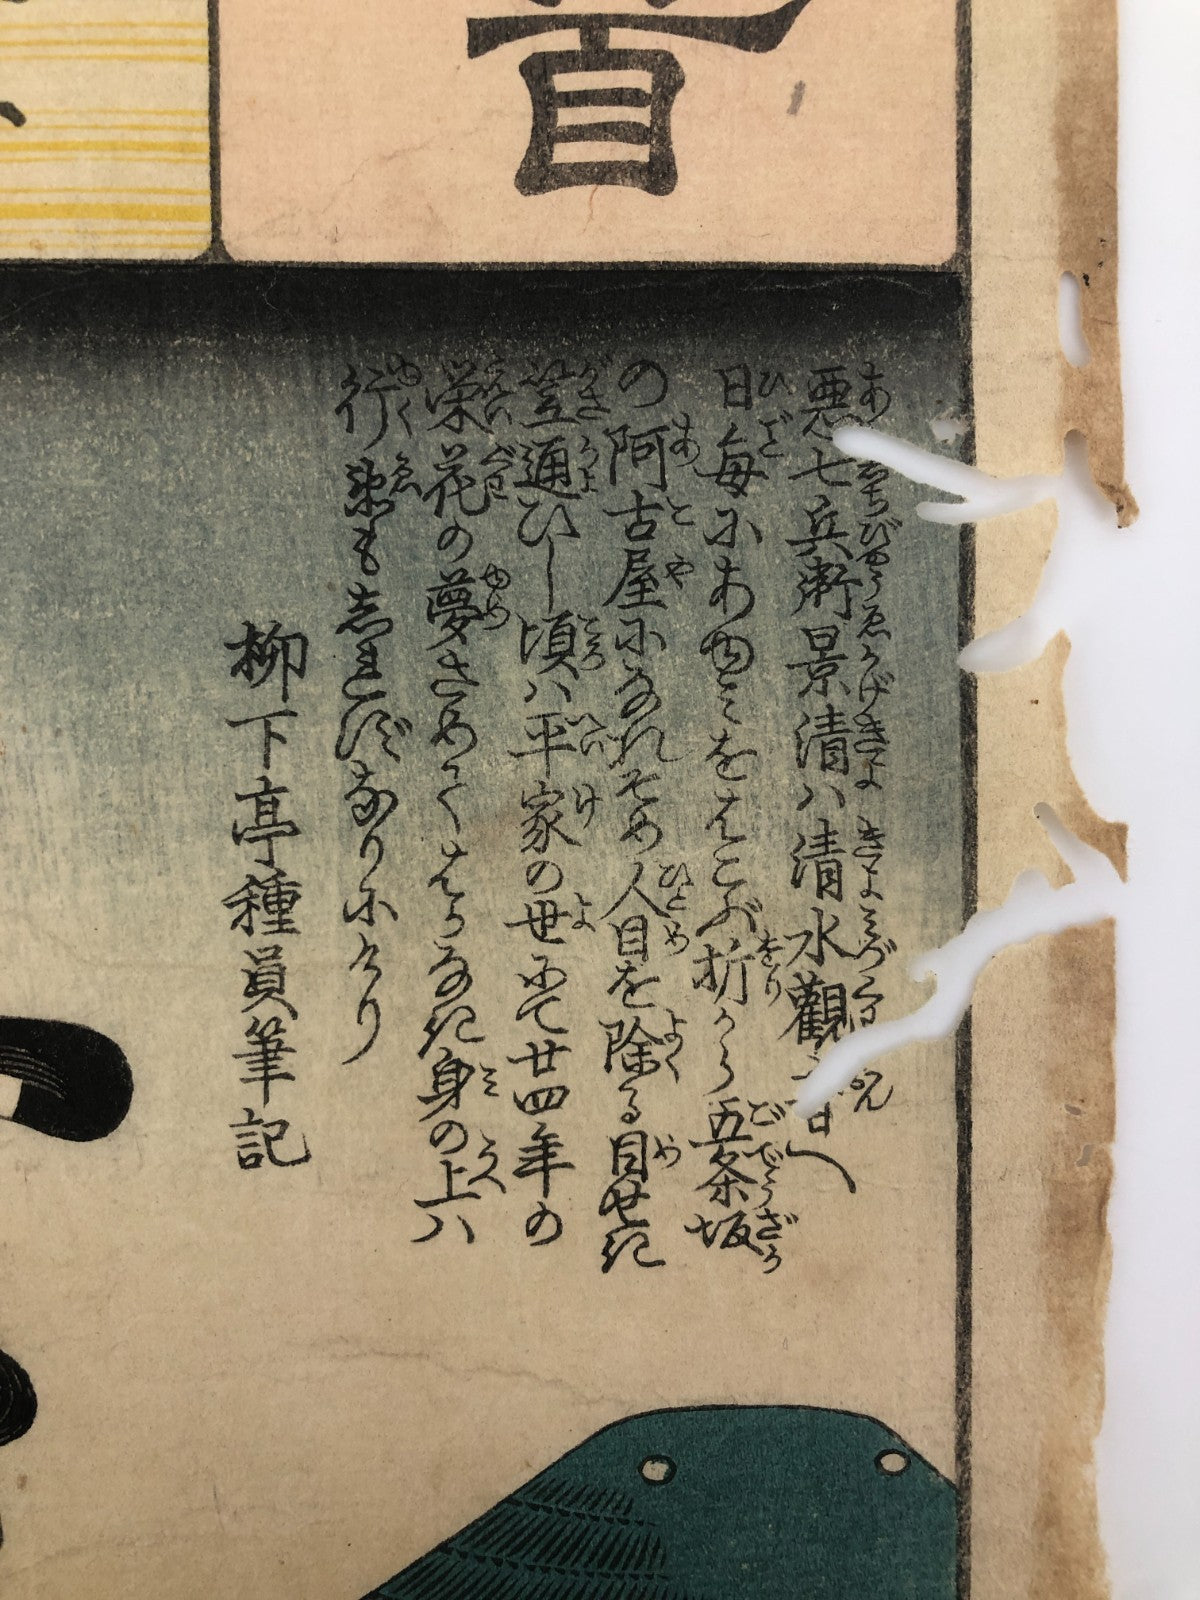 音
悪七兵衛景清ハ清水觀音へ
日毎にあゆミをはこぶ折から五条坂
の阿古屋になれそめ人目を除る目せき
笠通ひし頃ハ平家の世にて廿四年の
栄花の夢さめてはかなき身の上ハ
行衛も志れずなりにけり
柳下亭種員筆記